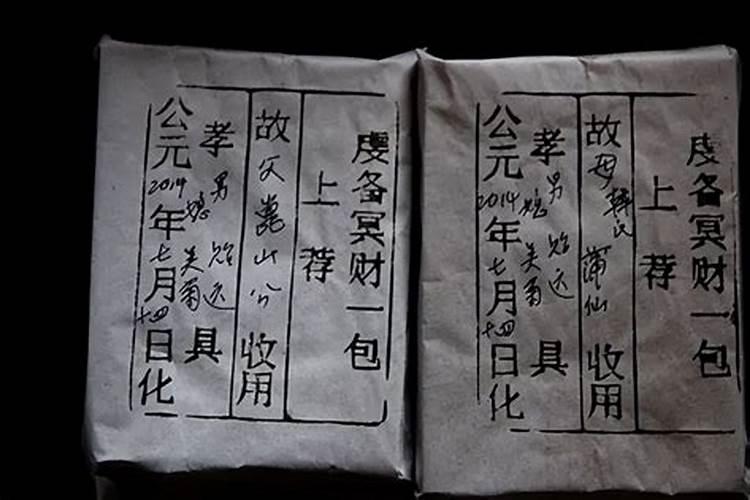 虔备冥财一包
上荐
故父崑山公收用
孝男贻远
媳美菊具
公元2014年七月十四日化
虔备冥财一包
上荐
故母韩氏蒲仙收用
孝男贻远
媳美菊具
公元2014年七月十四日化